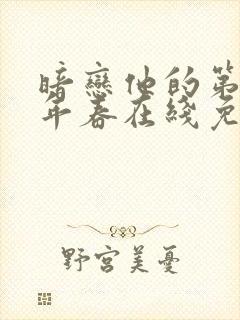 暗戀他的第
年春在綫免
野宮美憂